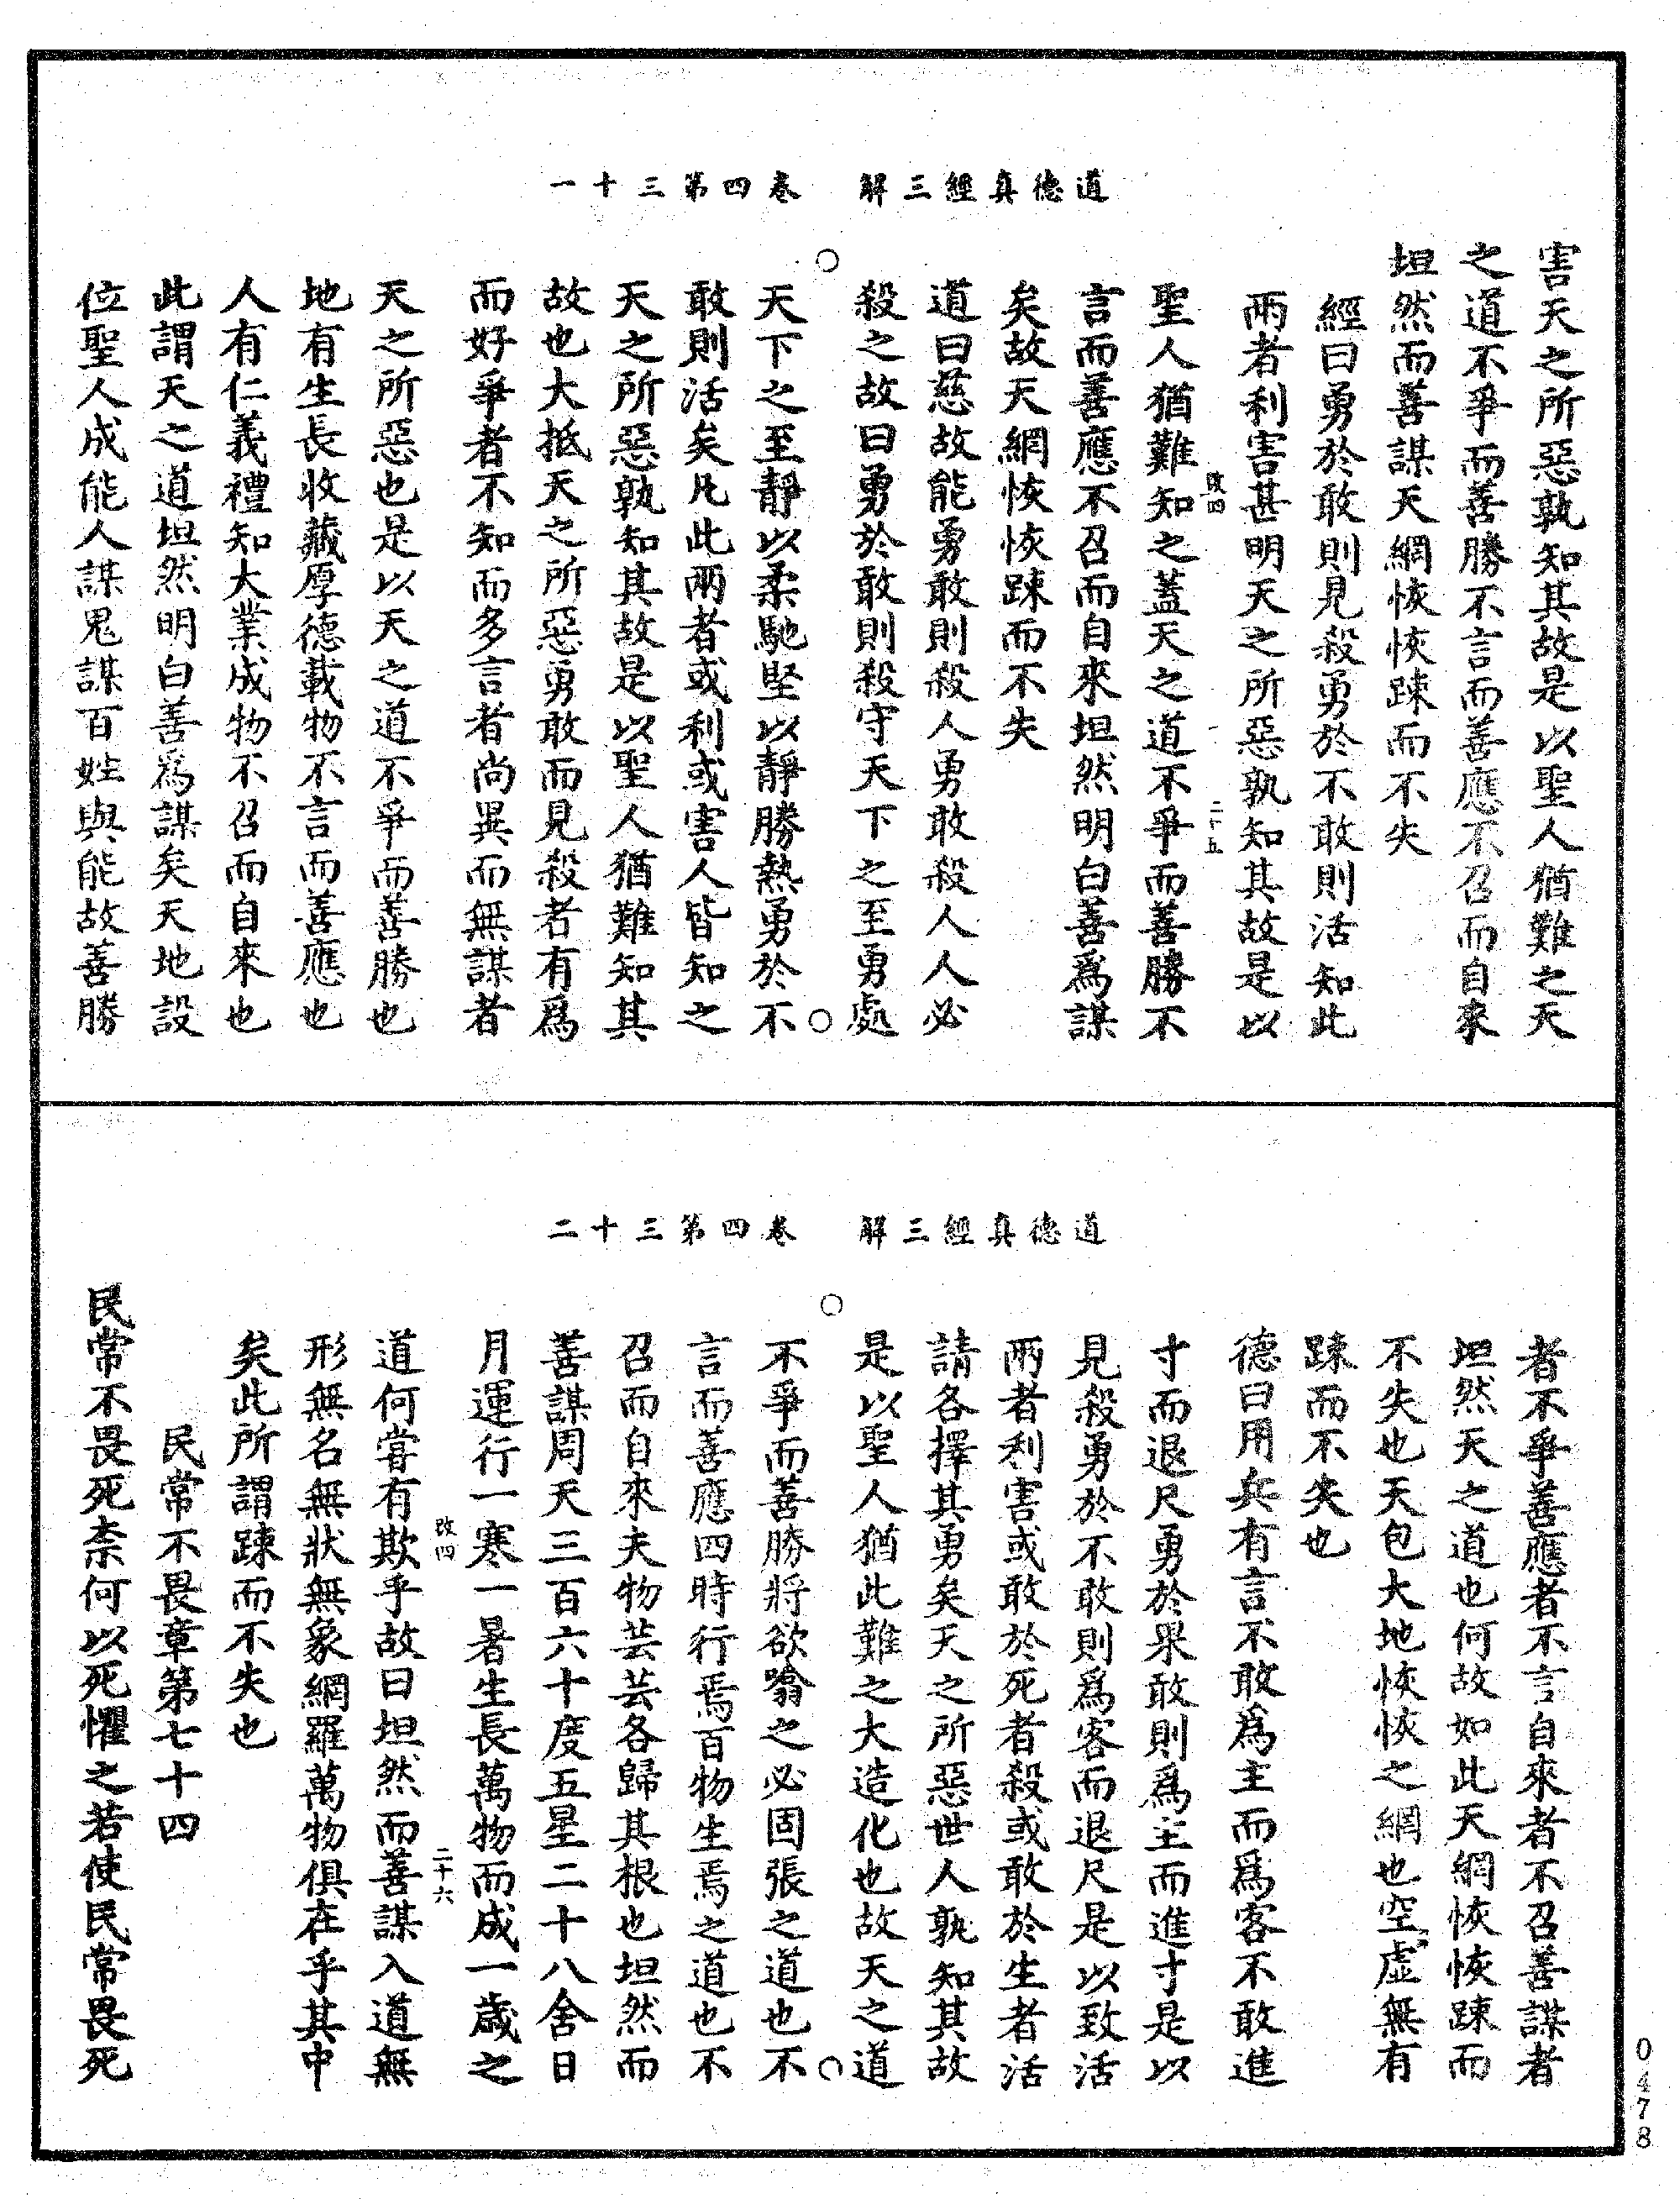 道德真經三解　卷四第三十一
害天之所惡孰知其故是以聖人猶難之天
之道不爭而善勝不言而善應不召而自來
坦然而善謀天網恢恢踈而不失
經曰勇於敢則見殺勇於不敢則活知此
兩者利害甚明天之所惡孰知其故是以
改四　二十五
聖人猶難知之蓋天之道不爭而善勝不
言而善應不召而自來坦然明白善爲謀
矣故天網恢恢踈而不失
道曰慈故能勇敢則殺人勇敢殺人人必
殺之故曰勇於敢則殺守天下之至勇處
天下之至靜以柔馳堅以靜勝熱勇於不
敢則活矣凡此兩者或利或害人皆知之
天之所惡孰知其故是以聖人猶難知其
故也大抵天之所惡勇敢而見殺者有爲
而好爭者不知而多言者尚異而無謀者
天之所惡也是以天之道不爭而善勝也
地有生長收藏厚德載物不言而善應也
人有仁義禮知大業成物不召而自來也
此謂天之道坦然明白善爲謀矣天地設
位聖人成能人謀鬼謀百姓與能故善勝
道德真經三解　卷四第三十二
者不爭善應者不言自來者不召善謀者
坦然天之道也何故如此天網恢恢踈而
不失也天包大地恢恢之網也空虛無有
踈而不失也
德曰用兵有言不敢爲主而爲客不敢進
寸而退尺勇於果敢則爲主而進寸是以
見殺勇於不敢則爲客而退尺是以致活
兩者利害或敢於死者殺或敢於生者活
請各擇其勇矣天之所惡世人孰知其故
是以聖人猶此難之大造化也故天之道
不爭而善勝將欲噏之必固張之道也不
言而善應四時行焉百物生焉之道也不
召而自來夫物芸芸各歸其根也坦然而
善謀周天三百六十度五星二十八舍日
月運行一寒一暑生長萬物而成一歲之
改四　二十六
道何嘗有欺乎故曰坦然而善謀入道無
形無名無狀無象網羅萬物俱在乎其中
矣此所謂踈而不失也
民常不畏章第七十四
民常不畏死柰何以死懼之若使民常畏死
0478